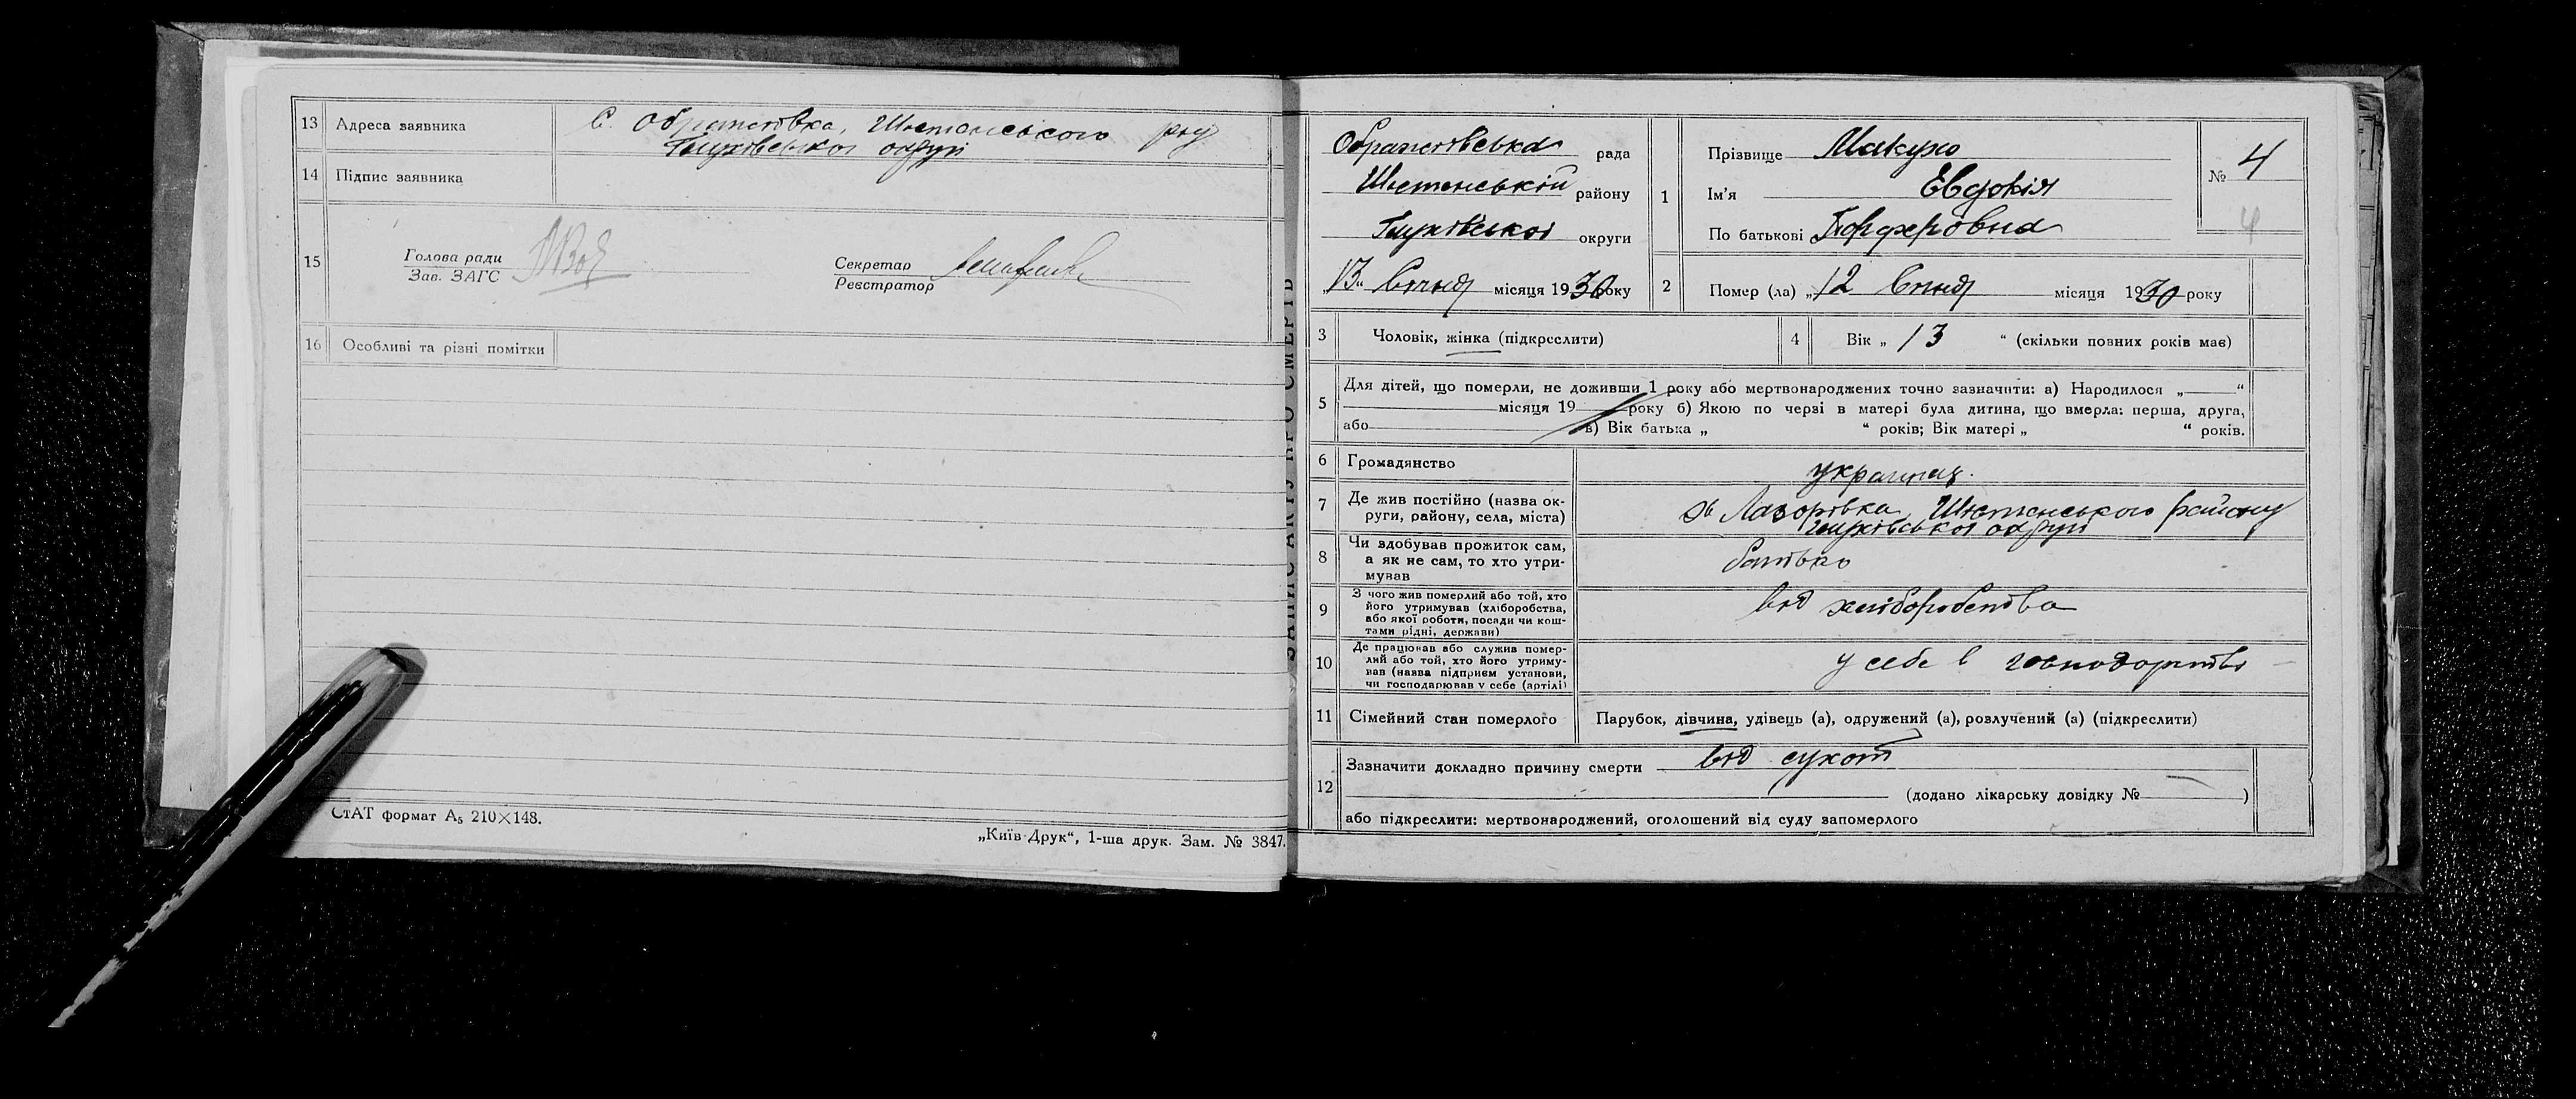 13 Адреса заявника С. Обра Шостенського р-ну
Глухівської округи
14 Підпис заявника
15 Голова ради
Зав. ЗАГС
Секретар
Реєстратор
16 Особливі та різні помітки
СтАТ формат А₅ 210×148.
„Київ-Друк“, 1-ша друк. Зам. № 3847.
ЗАПИС АКТУ ПРО СМЕРТЬ
рада
Шостенській району
Глухівської округи
„13“ Січня місяця 1930 року
1 Прізвище Макухо
Ім'я Евдокія
По батькові Порферовна
№ 4
4
2 Помер (ла) „12 Січня місяця 1930 року
3 Чоловік, жінка (підкреслити)
4 Вік „ 13 “ (скільки повних років має)
5 Для дітей, що померли, не доживши 1 року або мертвонароджених точно зазначити: а) Народилося „ “
місяця 19 року б) Якою по черзі в матері була дитина, що вмерла: перша, друга,
або в) Вік батька „ “ років; Вік матері „ “ років.
6 Громадянство українец.
7 Де жив постійно (назва ок-
руги, району, села, міста) хв Лазорівка, Шостенського району
Глухівської округи
8 Чи здобував прожиток сам,
а як не сам, то хто утри-
мував батько
9 З чого жив померлий або той, хто
його утримував (хліборобства,
або якої роботи, посади чи кош-
тами рідні, держави) від хліборобства
10 Де працював або служив помер-
лий або той, хто його утриму-
вав (назва підприєм установи,
чи господарював у себе (артілі) у себе в господарстві
11 Сімейний стан померлого Парубок, дівчина, удівець (а), одружений (а), розлучений (а) (підкреслити)
12 Зазначити докладно причину смерти від сухот
(додано лікарську довідку № — )
або підкреслити: мертвонароджений, оголошений від суду запомерлого